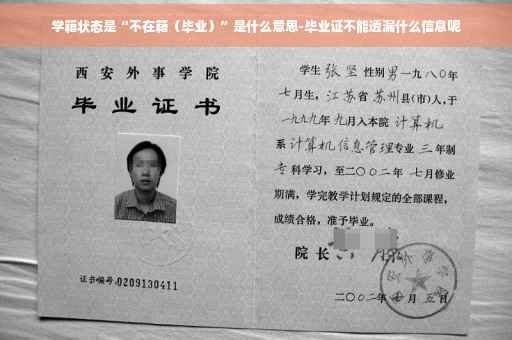 学籍状态是“不在籍（毕业）”是什么意思-毕业证不能透漏什么信息呢
西安外事学院
毕业证书
证书编号:0209130411
学生 张坚 性别男一九八〇年
七月生，江苏省苏州县(市)人，于
一九九九年九月入本院 计算机
系计算机信息管理专业 三 年制
专科学习，至二〇〇二年 七月修业
期满，学完教学计划规定的全部课程，
成绩合格，准予毕业。
院长
二〇〇二年 月 五日